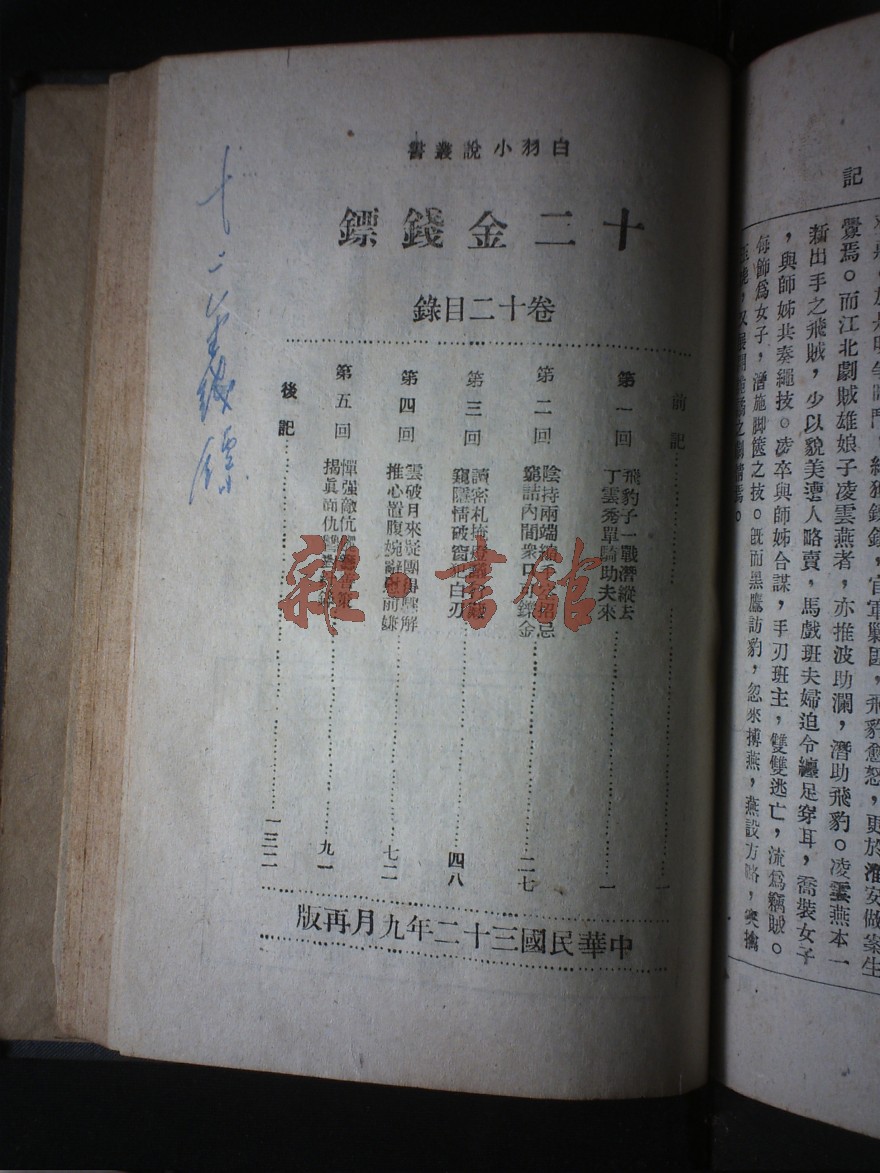 白羽小說叢書
十二金錢鏢
卷十二目錄
前記 一
第一回 飛豹子一戰潛縱去 丁雲秀單騎助夫來 一
第二回 陰持兩端 忌 窮詰内間衆口 鑠金 二七
第三回 讀密札掩燈 窺隱情破窗 白刃 四八
第四回 雲破月來疑團得 解 推心置腹婉辭 前嫌 七二
第五回 憚强敵 揭眞面仇 九一
後記 一三二
中華民國三十二年九月再版
十二金錢鏢
雜書館
記
官軍剿匪,飛豹愈怒,更於淮安做案生
釁焉。而江北劇賊雄娘子凌雲燕者,亦推波助瀾,潛助飛豹。凌雲燕本一
新出手之飛賊,少以貌美遭人略賣,馬戲班夫婦迫令纏足穿耳,喬裝女子
,與師姊共奏繩技。凌卒與師姊合謀,手刃班主,雙雙逃亡,流爲竊賊。
每飾爲女子,潛施胠篋之技。旣而黑鷹訪豹,忽來搏燕,燕設方略,突擒